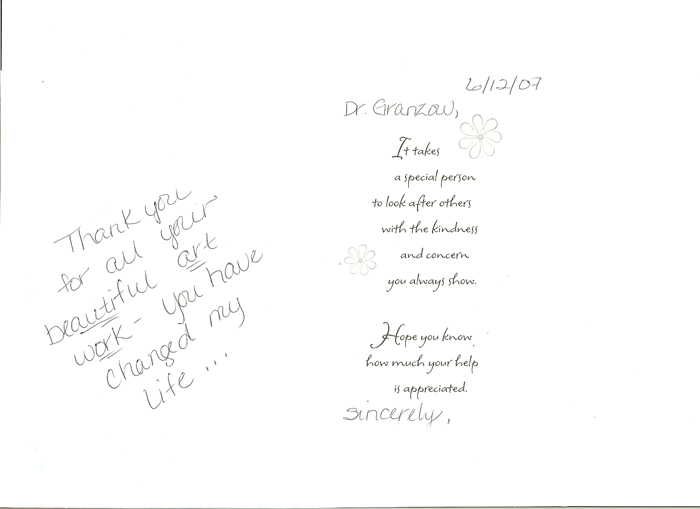 Thank you
for all your
beautiful art
work - you have
changed my
life...
6/12/07
Dr. Granzow,
It takes
a special person
to look after others
with the kindness
and concern
you always show.
Hope you know
how much your help
is appreciated.
Sincerely,